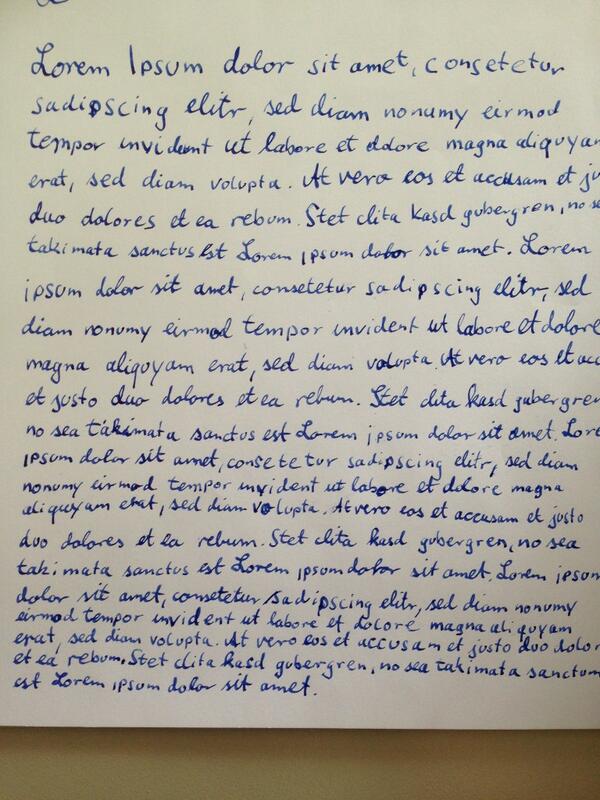 Lorem Ipsum dolor sit amet, consetetur
sadipscing elitr, sed diam nonumy eirmod
tempor invidunt ut labore et dolore magna aliquyam
erat, sed diam volupta. At vero eos et accusam et ju
duo dolores et ea rebum. Stet clita kasd gubergren, no se
takimata sanctus est Lorem ipsum dolor sit amet. Lorem
ipsum dolor sit amet, consetetur sadipscing elitr, sed
diam nonumy eirmod tempor invident ut labore et dolore
magna aliquyam erat, sed diam volupta. At vero eos et acc
et justo duo dolores et ea rebum. Stet clita kasd gubergren
no sea takimata sanctus est Lorem ipsum dolor sit amet. Lore
ipsum dolor sit amet, consetetur sadipscing elitr, sed diam
nonumy eirmod tempor invident ut labore et dolore magna
aliquyam erat, sed diam volupta. At vero eos et accusam et justo
duo dolores et ea rebum. Stet clita kasd gubergren, no sea
takimata sanctus est Lorem ipsum dolor sit amet. Lorem ipsum
dolor sit amet, consetetur sadipscing elitr, sed diam nonumy
eirmod tempor invident ut labore et dolore magna aliquyam
erat, sed diam volupta. At vero eos et accusam et justo duo dolor
et ea rebum. Stet clita kasd gubergren, no sea takimata sanctum
est Lorem ipsum dolor sit amet.